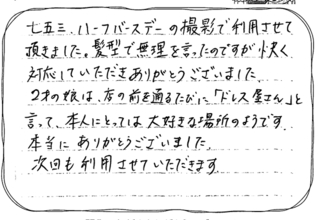 七五三、ハーフバースデーの撮影で利用させて
頂きました。髪型で無理を言ったのですが快く
対応していただきありがとうございました。
2才の娘は、店の前を通るたびに「ドレス屋さん」と
言って、本人にとっては大好きな場所のようです。
本当に ありがとうございました。
次回も利用させていただきます。